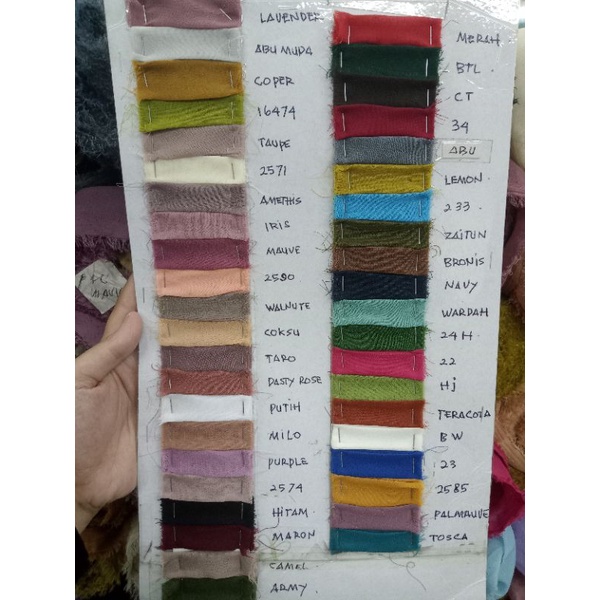 LAVENDER
ABU MUDA
COPER
16474
TAUPE
2571
AMETHIS
IRIS
MAUVE
2580
WALNUTE
COKSU
TARO
DASTY ROSE
PUTIH
MILO
PURPLE
2574
HITAM
MARON
CAMEL
ARMY
MERAH
BTL
CT
34
ABU
LEMON
233
ZAITUN
BRONIS
NAVY
WARDAH
24H
22
Hj
TERACOTA
BW
23
2585
PALMAUVE
TOSCA